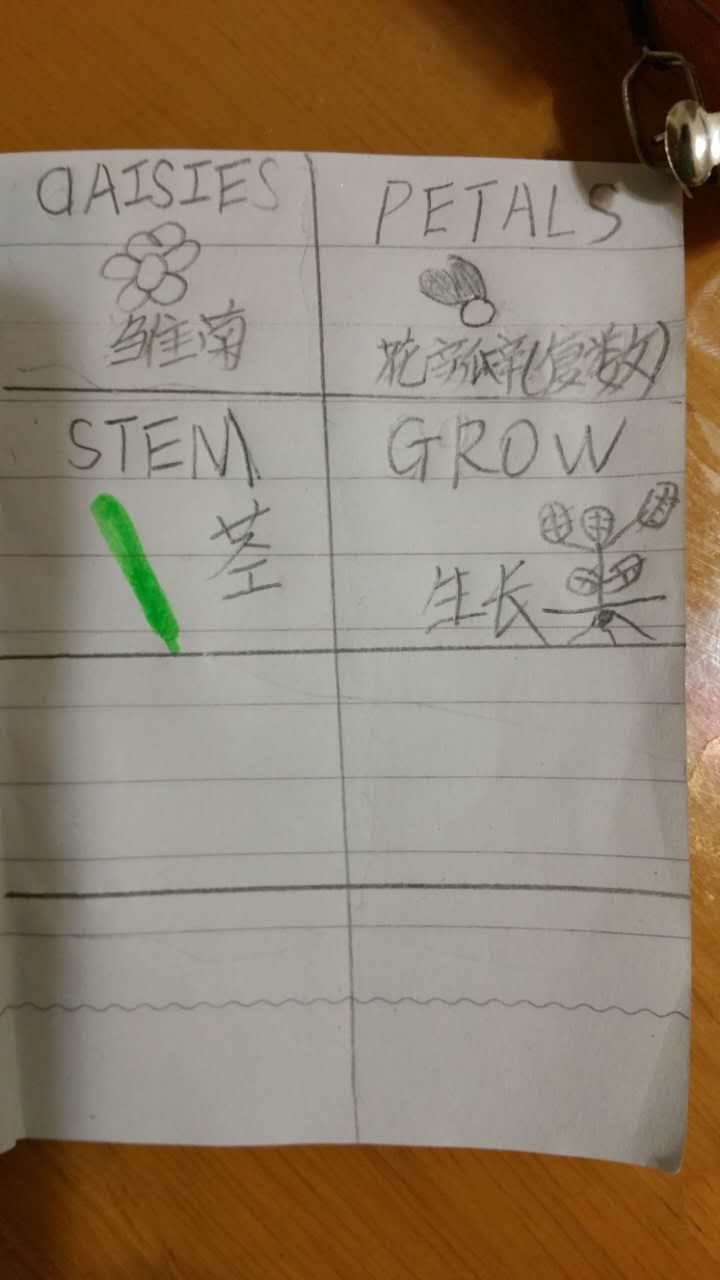 DAISIES
雏菊
PETALS
花瓣(复数)
STEM
茎
GROW
生长